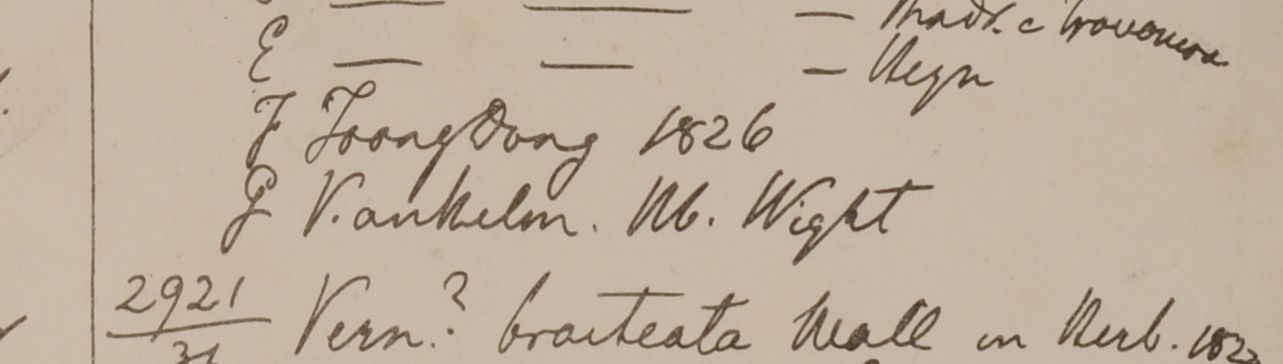 — — — Madr. c Travencor
E — — — Heyn
F Toong Dong 1826
G V. anthelm. Hb. Wight
2921 Vern.? bracteata Wall in Herb. 1823
31